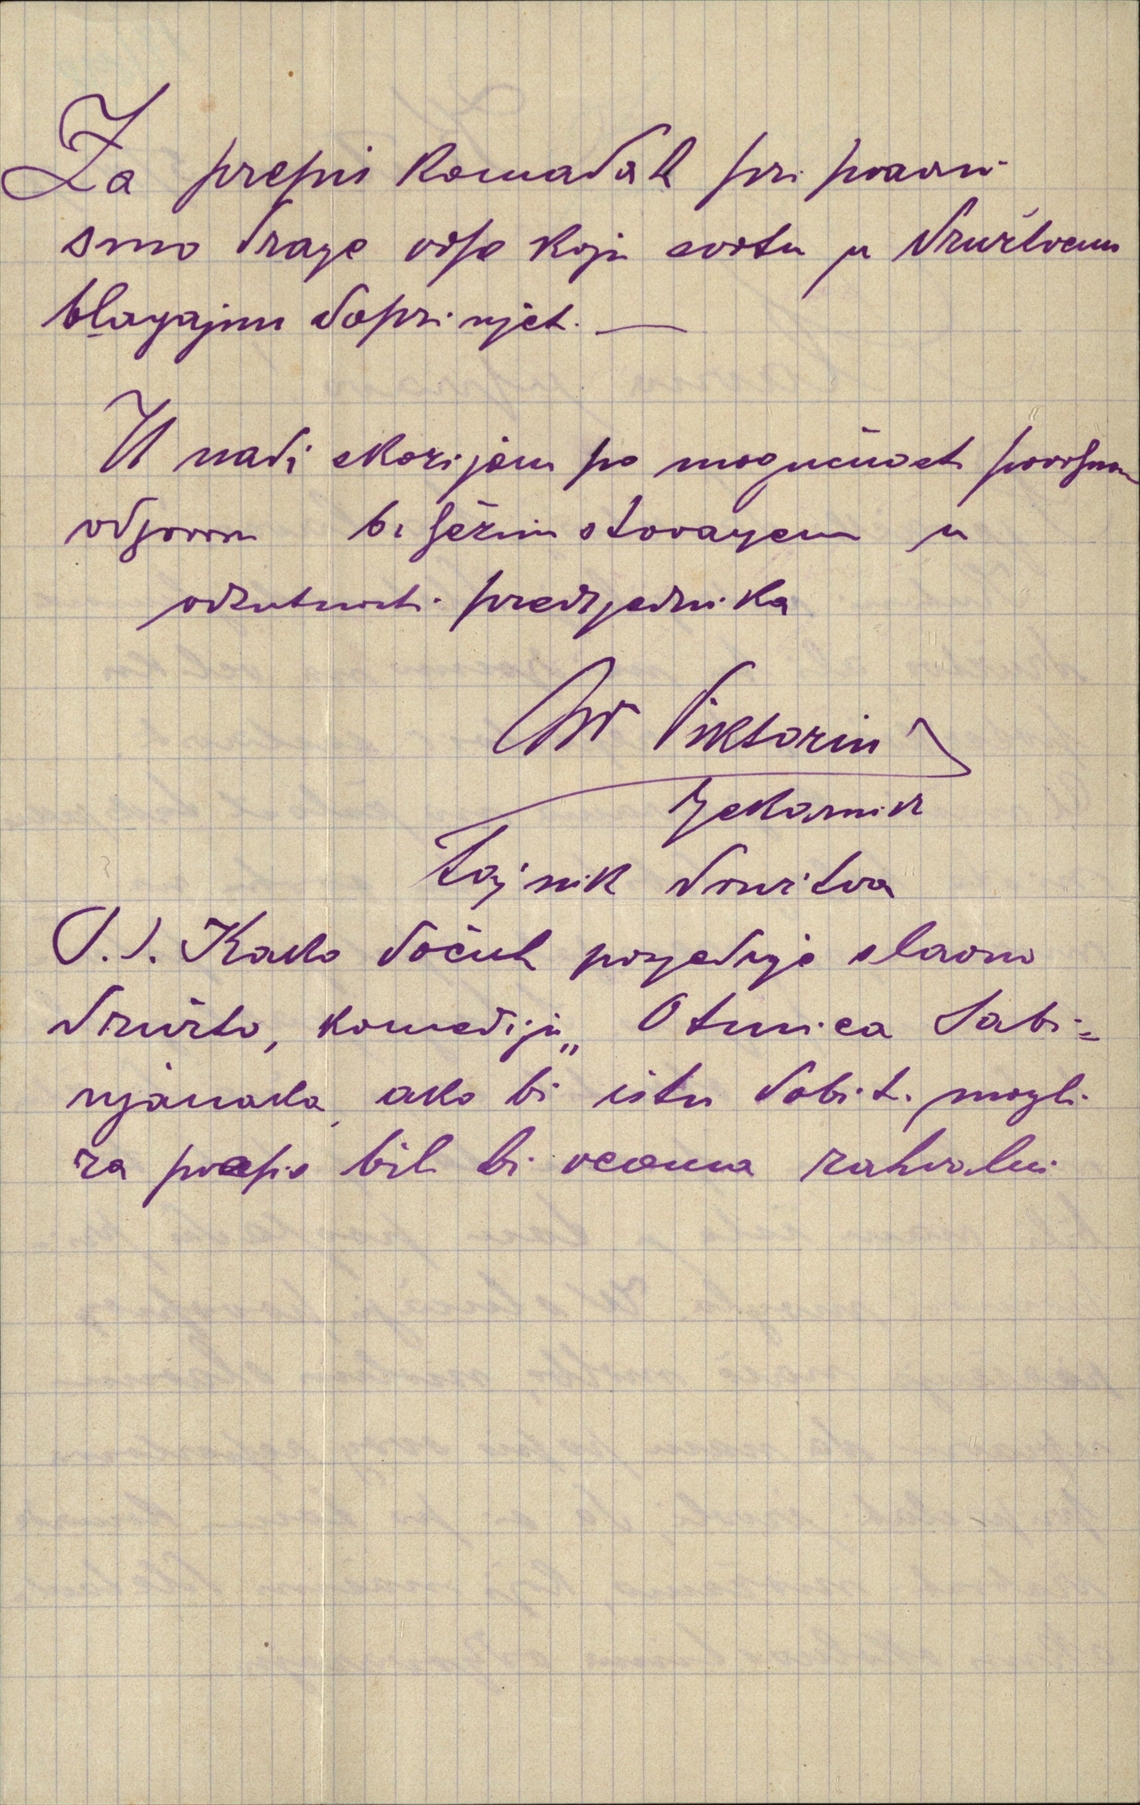 Za prepis komadah pripravni
smo drage volje koju svotu u družtvenu
blagajnu doprinjet. —
U nadi skorijem po mogućnosti povoljnom
odgovoru bilježim stovanjem u
odsutnosti predsjednika
Viktorin
ljekarnik
tajnik družtva
P.S. Kako dočuh posjeduje slavno
družtvo, komediju „Otmica Sabi=
njanaka, ako bi istu dobiti mogli
za prepis bili bi veoma zahvalni